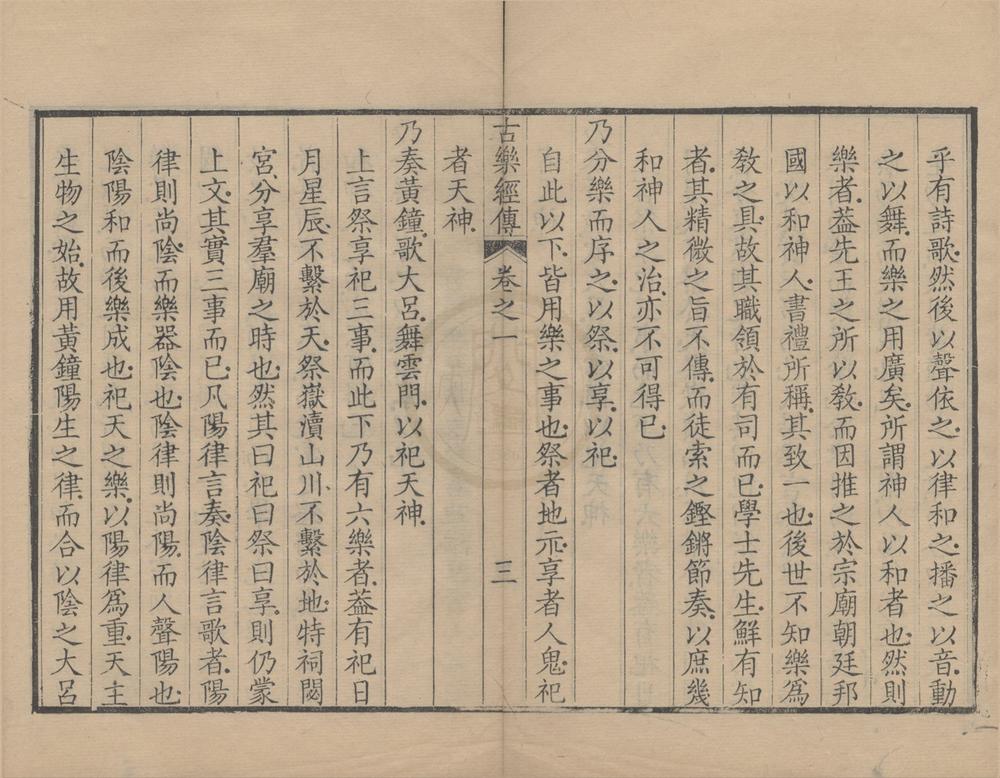 乎有詩歌然後以聲依之以律和之播之以音動
之以舞而樂之用廣矣所謂神人以和者也然則
樂者葢先王之所以敎而因推之於宗廟朝廷邦
國以和神人書禮所稱其致一也後世不知樂爲
敎之具故其職領於有司而已學士先生鮮有知
者其精微之旨不傳而徒索之鏗鏘節奏以庶幾
和神人之治亦不可得已
乃分樂而序之以祭以享以祀
自此以下皆用樂之事也祭者地示享者人鬼祀
古樂經傳 卷之一 三
者天神
乃奏黃鐘歌大呂舞雲門以祀天神
上言祭享祀三事而此下乃有六樂者葢有祀日
月星辰不繫於天祭嶽瀆山川不繫於地特祠閟
宮分享羣廟之時也然其曰祀曰祭曰享則仍蒙
上文其實三事而已凡陽律言奏陰律言歌者陽
律則尚陰而樂器陰也陰律則尚陽而人聲陽也
陰陽和而後樂成也祀天之樂以陽律爲重天主
生物之始故用黃鐘陽生之律而合以陰之大呂